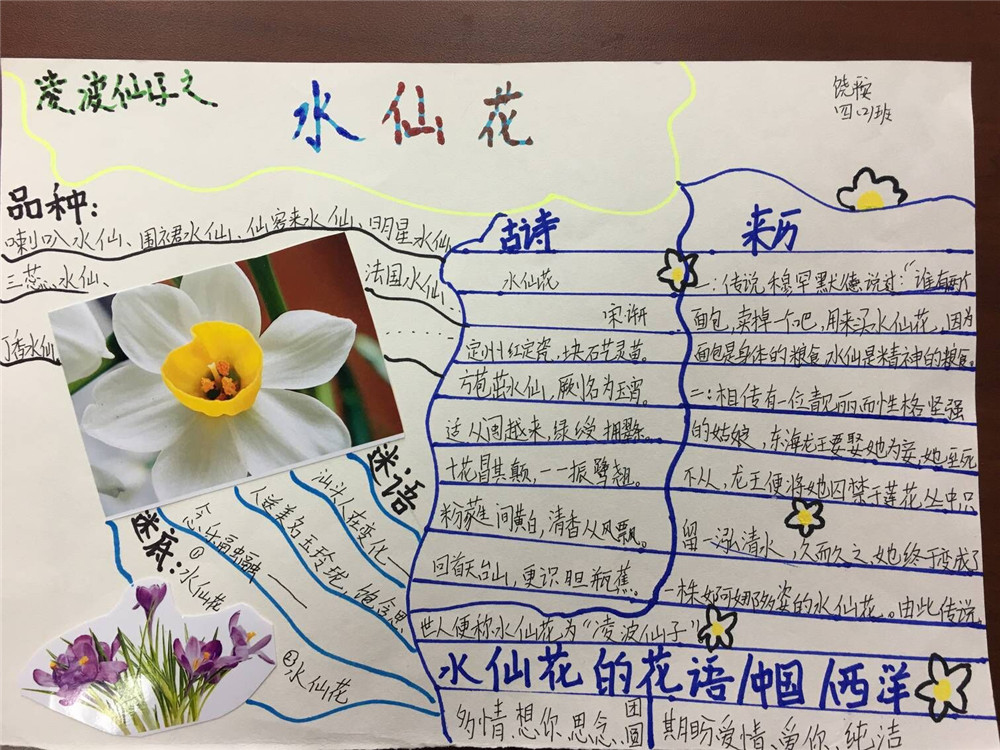 凌波仙子之
水仙花
四(2)班
品种:
喇叭水仙、围裙水仙、仙客来水仙、明星水仙
三蕊水仙、
法国水仙、
丁香水仙
古诗
水仙花
宋 许开
定州红定瓷,块石艺灵苗。
方苞茁水仙,厥名为玉霄。
适从闽越来,绿绶拥翠条。
十花冒其颠,一一振鹭翘。
粉蕤间黄白,清香从风飘。
回首天台山,更识胆瓶蕉。
来历
一:传说穆罕默德说过:“谁有两个
面包,卖掉一个吧,用来买水仙花,因为
面包是身体的粮食,水仙是精神的粮食。
二:相传有一位靓丽而性格坚强
的姑娘,东海龙王要娶她为妾,她坚死
不从,龙王便将她囚禁于莲花丛中只
留一泓清水,久而久之,她终于变成了
一株婀娜多姿的水仙花。由此传说,
世人便称水仙花为“凌波仙子”
谜语
汕头人在变化——
人送美名玉玲珑,饱含思
念乐融融——
谜底:
①水仙花
②水仙花
水仙花的花语(中国)(西洋
多情、想你、思念、团圆
期盼爱情、爱你、纯洁